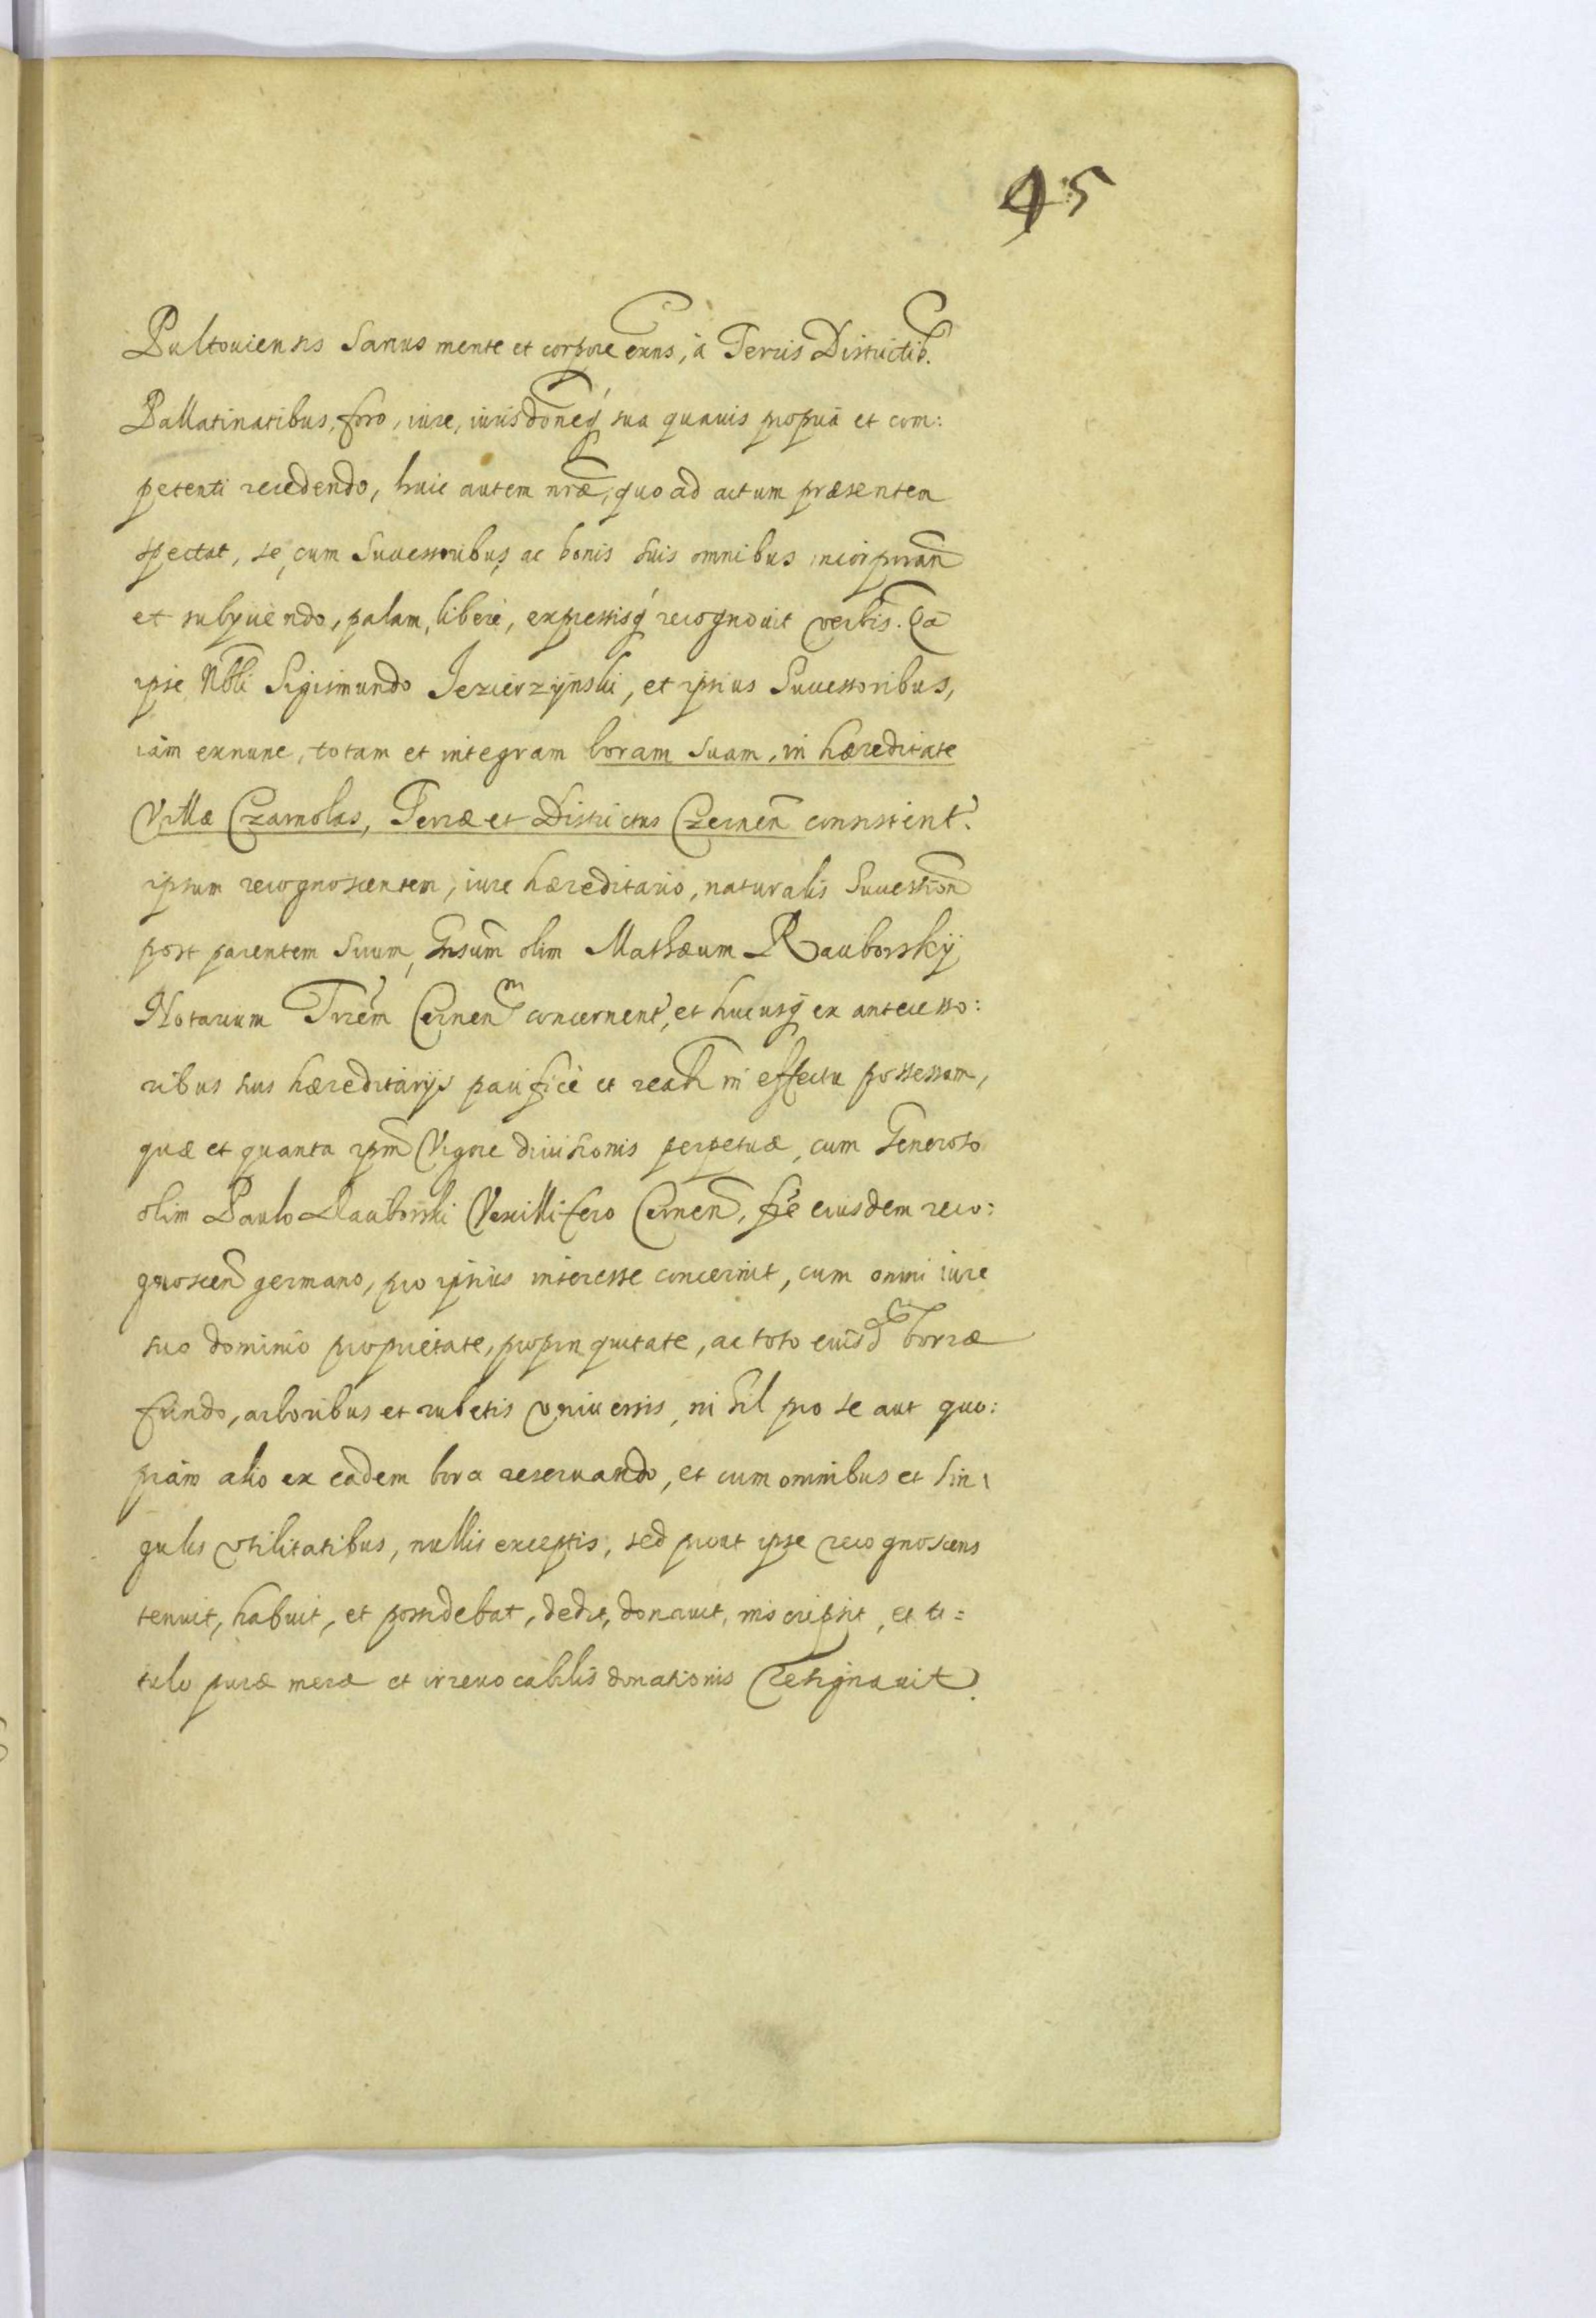 45
Pultouiensis Sanus mente et corpore exñs, à Terris Districtib.
Pallatinatibus, foro, iure, iurisdõneq́ sua quauis propria et com:
petenti recedendo, huic autem nræ, quo ad actum præsentem
spectat, se, cum Successoribus, ac bonis suis omnibus incorporañ
et subyciendo, palam, liberè, expressisq́ recognouit verbis. Qa
ipse Nbli Sigismundo Jezierzÿnski, et ipsius Successoribus,
iàm exnunc, totam et integram boram suam, in hæreditate
Villæ Czarnolas, Terræ et Districtus Czernen̄ consistent.
ipsum recognoscentem, iure hæreditario, naturalis Succession̄
post parentem suum, Gnsum olim Mathæum Rauborskÿ
Notarium Trrem Cernen̄ concernent, et hucusq́ ex antecesso:
ribus suis hæreditarÿs pacificè et realr in effectu possessam,
quæ et quanta ipm̄ Vigore diuisionis perpetuæ, cum Generoso
olim Paulo Rauborski Vexillifero Cernen̄, fre eiusdem reco:
gnoscen̄ germano, pro ipsius interesse concernit, cum omni iure
suo dominio proprietate, propinquitate, ac toto eiusd boræ
fundo, arboribus et rubetis vniuersis, nihil pro se aut quo:
piàm alio ex eadem bora reseruando, et cum omnibus et sin:
gulis vtilitatibus, nullis exceptis, sed prout ipse recognoscens
tenuit, habuit, et possidebat, dedit, donauit, inscripsit, et ti=
tulo puræ meræ et irreuocabilis donationis resignauit.